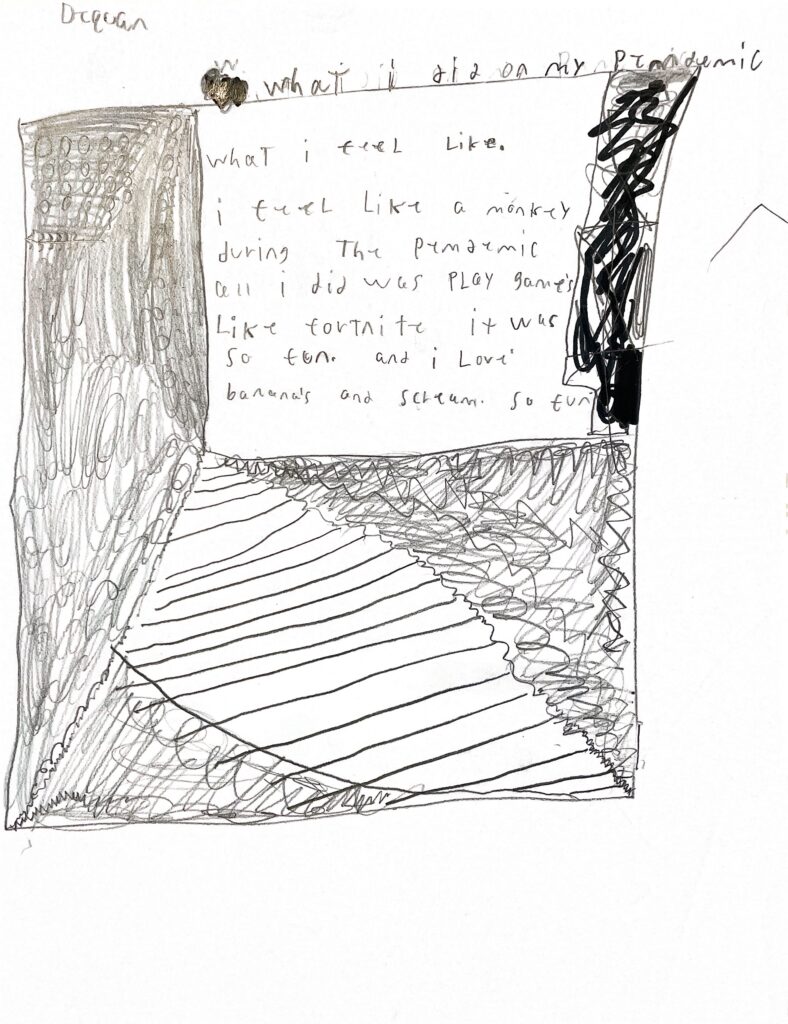 Dequan
what i did on my Pemidemic
what i feel like.
i feel like a monkey
during The Pemdemic
all i did was PLAY games
Like fortnite it was
So fun. and i Love
banana's and scream. So fun